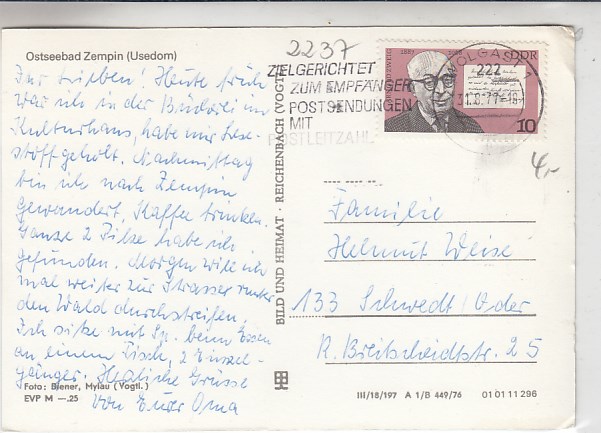 Ostseebad Zempin (Usedom)
Ihr Lieben! Heute früh
war ich in der Bücherei im
Kulturhaus, habe mir Lese-
stoff geholt. Nachmittag
bin ich nach Zempin
gewandert, Kaffee trinken.
Ganze 2 Pilze habe ich
gefunden. Morgen will ich
mal weiter zur Strasse runter
den Wald durchstreifen.
Ich sitze mit beim Essen
an einem Tisch, 2 Einzel-
gänger. Herzliche Grüsse
von Eurer Oma
Foto: Biener, Mylau (Vogtl.)
EVP M —.25
BILD UND HEIMAT · REICHENBACH (VOGTL
2237
ZIELGERICHTET
ZUM EMPFÄNGER
POSTSENDUNGEN
MIT
POSTLEITZAHL
WOLGAST
222
DDR
10
4,-
Familie
Helmut Weise
133 Schwedt/Oder
R. Breitscheidtstr. 25
III/18/197 A 1/B 449/76 01 01 11 296